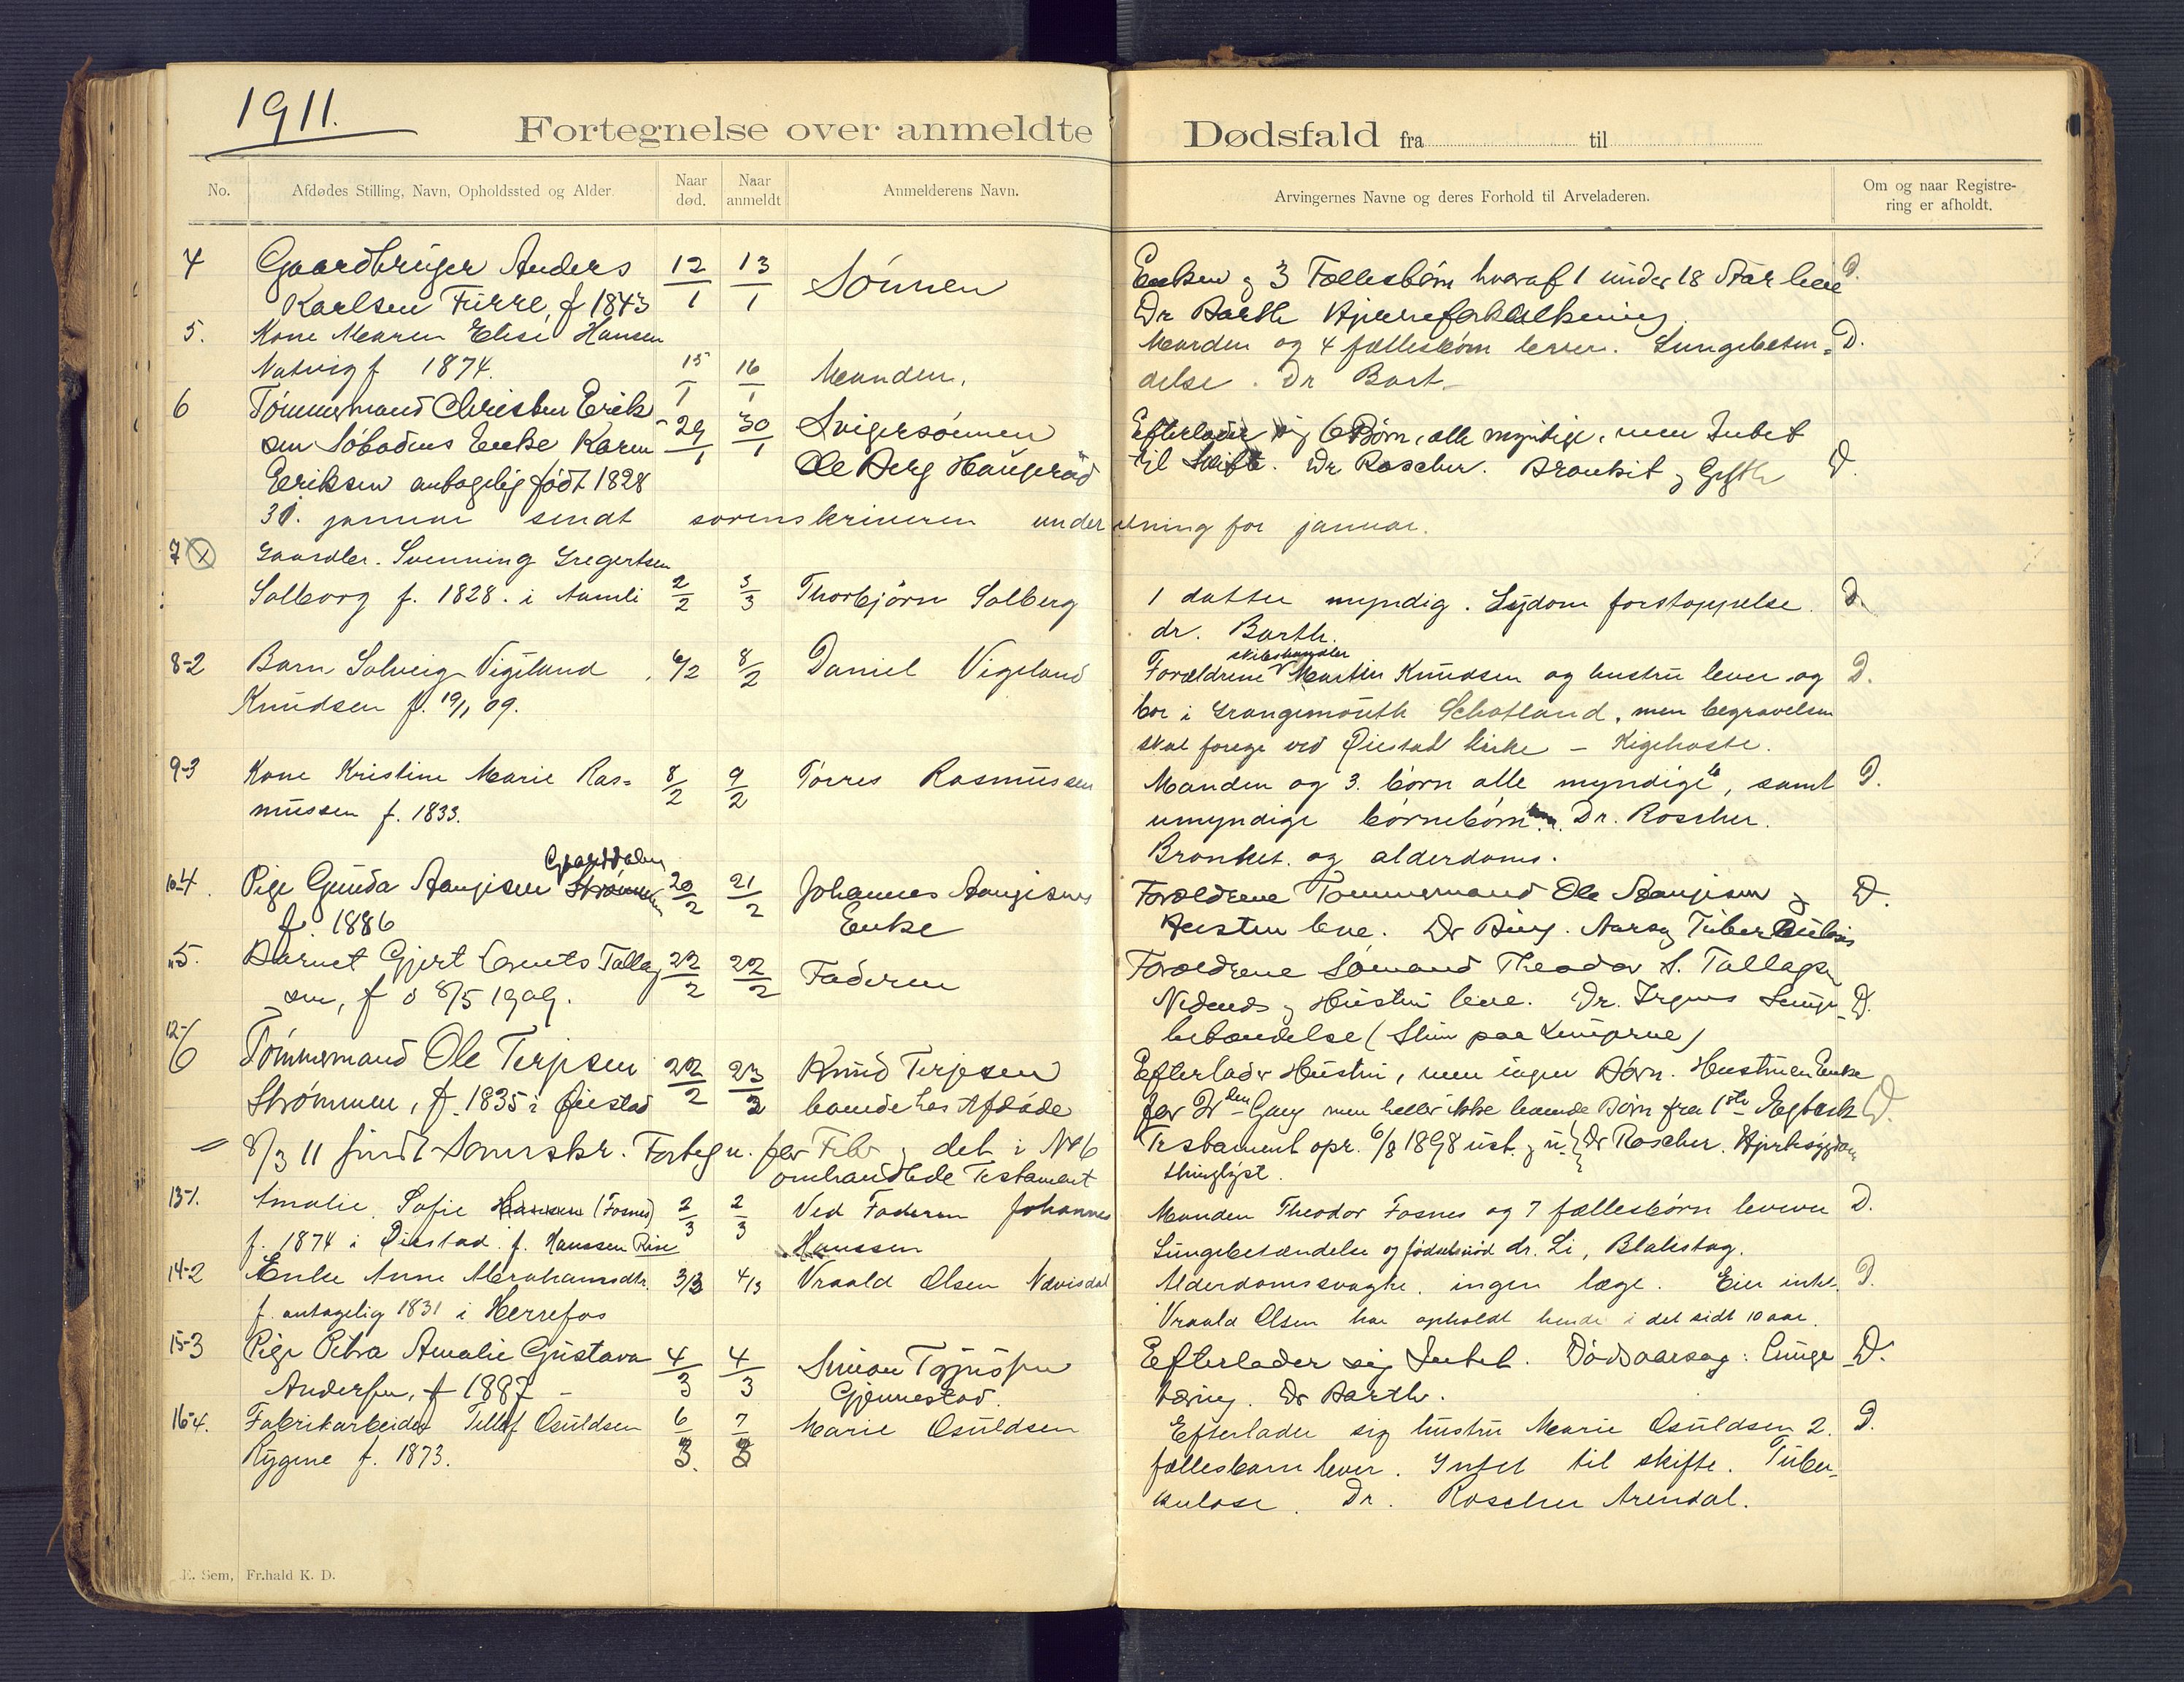 1911.
Fortegnelse over anmeldte Dødsfald fra til
No.
Afdødes Stilling, Navn, Opholdssted og Alder.
Naar død.
Naar anmeldt
Anmelderens Navn.
Arvingernes Navne og deres Forhold til Arveladeren.
Om og naar Registrering er afholdt.
4 Gaardbruger Anders 12/1 13/1 Sønnen Enken og 3 Fællesbørn hvoraf 1 under 18 Aar leve D.
Karlsen Fürre, f 1843 Dr Barth Hjerneforkalkning.
5. Kone Maren Elise Hansen Manden og 4 fællesbørn lever. Lungebeten= D.
Natvig f 1874. 15/1 16/1 Manden. delse. Dr Bart.
6 Tømmermand Christen Erik 29/1 30/1 Svigersønnen Efterlader sig 6 Børn, alle myndige, men Intet
sen Søbodens Enke Karen Ole Berg Haugerød til Skifte. Dr Roscher. Bronkit og Gigth D.
Eriksen antagelig født 1828
31. januar sendt sorenskriveren underretning for januar.
7 x Gaardbr. Svenning Gregertsen
Solborg f. 1828. i Aamli 2/2 3/3 Thorbjørn Solberg 1 datter myndig. Sydom forstoppelse. D.
dr. Barth.
8-2 Barn Solveig Vigeland 6/2 8/2 Daniel Vigeland Forældrene skibshandler Martin Knudsen og hustru lever og D.
Knudsen f. 19/1 09. bor i Grangemouth Schotland, men begravelsen
skal forege ved Øiestad kirke - Kigehoste.
9-3 Kone Kristine Marie Ras= 8/2 9/2 Tørres Rasmussen Manden og 3. børn alle myndige, samt D.
mussen f. 1833. umyndige børnebørn. Dr. Roscher.
Bronket. og alderdoms.
10-4. Pige Gunda Aanjesen Strømmen 20/2 21/2 Johannes Aanjesens Forældrene Tømmermand Ole Aanjesen og D.
f. 1886 Enke Hustru leve. Dr Aarsag Tüberkulosis
"5. Barnet Gjert Tallag 22/2 22/2 Faderen Forældrene Sømand Theodor S. Tallagsen
sen, f ó 8/5 1909. Nedenes og Hustru leve. Dr. Irgens Lunge- D.
betændelse (Slim paa Lungerne)
12-6 Tømmermand Ole Terjesen 22/2 23/2 Knud Terjesen Efterlader Hustru, men ingen Børn. Hustruen Enke
Strømmen, f. 1835 i Øiestad boende hos Afdøde for 2den Gang men heller ikke levende Børn fra 1ste Ægtesk D.
8/3 11 sendt Sorenskr. Fortegn. for Febr og det i No 6 Testament opr. 6/8 1898 Dr Roscher. Hjertesygdom
omhandlede Testament thinglyst.
13-1. Amalie Sofie Hansen (Fosnes) 2/3 2/3 Ved Faderen Johannes Manden Theodor Fosnes og 7 fællesbørn lever D.
f. 1874 i Øiestad. f. Hanssen Rise Hanssen Lungebetændelse og fødselsnød dr. Li, Blakstag.
14-2 Enke Anne Abrahamsdtr. 3/3 4/3 Vraald Olsen Nævisdal Alderdomssvaghe. ingen læge. Eier intet. D.
f. antagelig 1831 i Herrefos Vraald Olsen har opholdt hende i det sidt 10 aar.
15-3 Pige Petra Amalie Gustava 4/3 4/3 Simon Efterlader sig Intet. Dødsaarsag: Lunge D.
Andersen, f 1887 - Gjennestad. tæring. Dr Barth.
16-4. Fabrikarbeider Tellef Osuldsen 6/3. 7/3 Marie Osuldsen Efterlader sig hustru Marie Osuldsen 2. D.
Rygene f. 1873. fællesbarn lever. Intet til skifte. Tuber-
kulose. Dr. Roscher Arendal.
E. Sem, Fr.hald K. D.